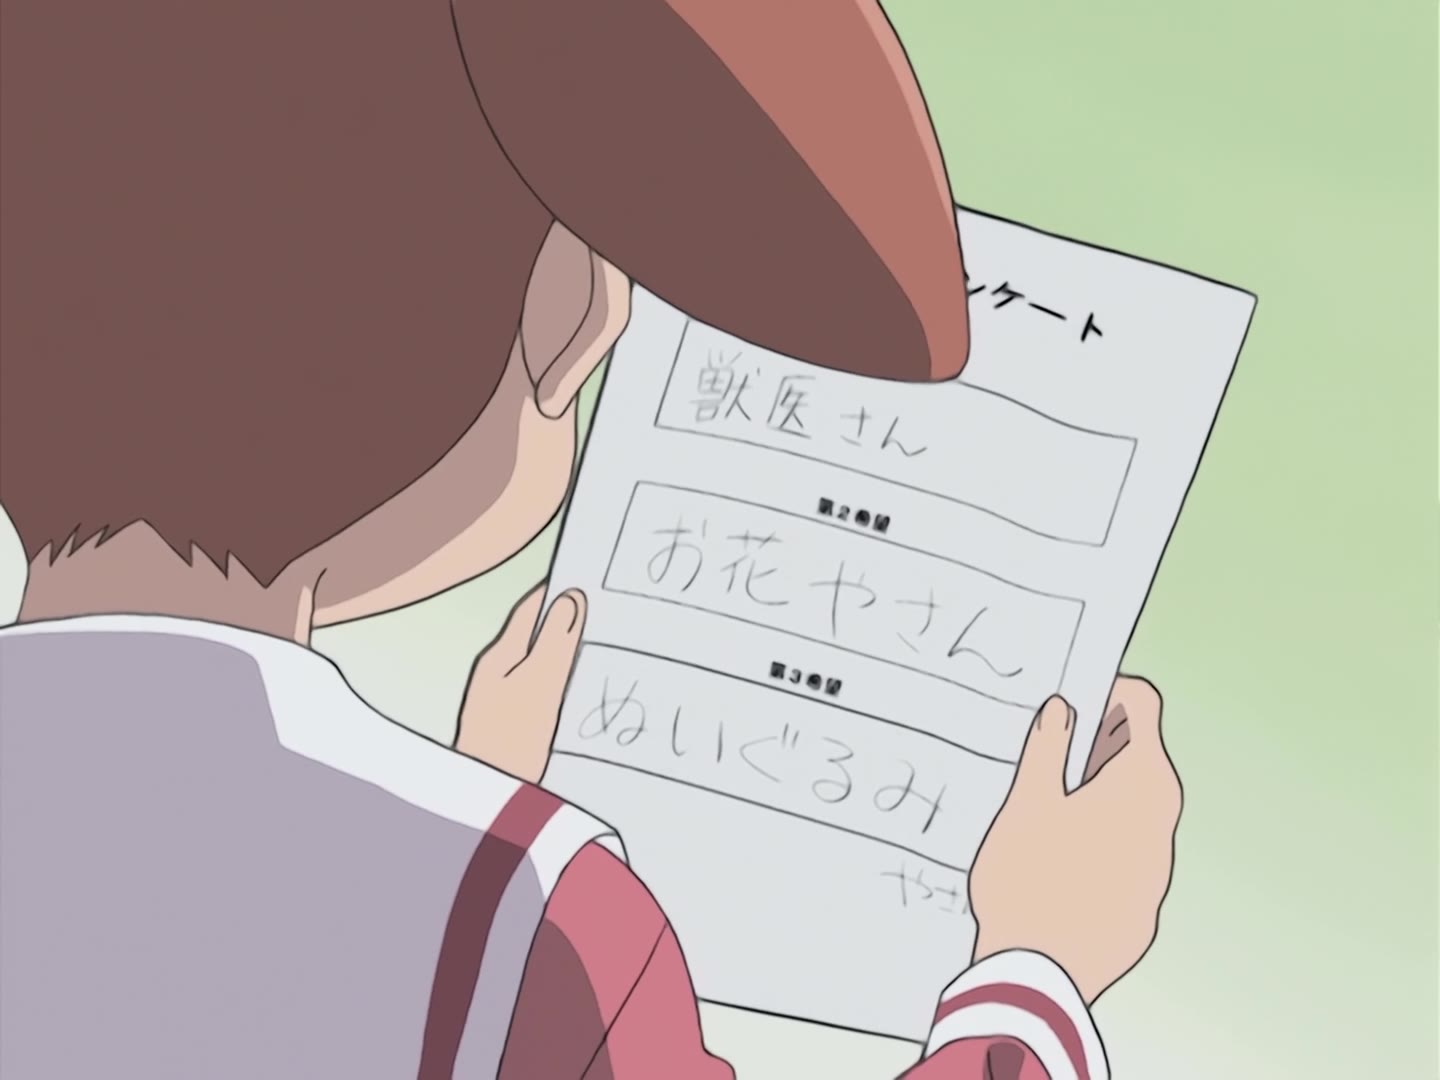 ンケート
獣医さん
第2希望
お花やさん
第3希望
ぬいぐるみ
やさん